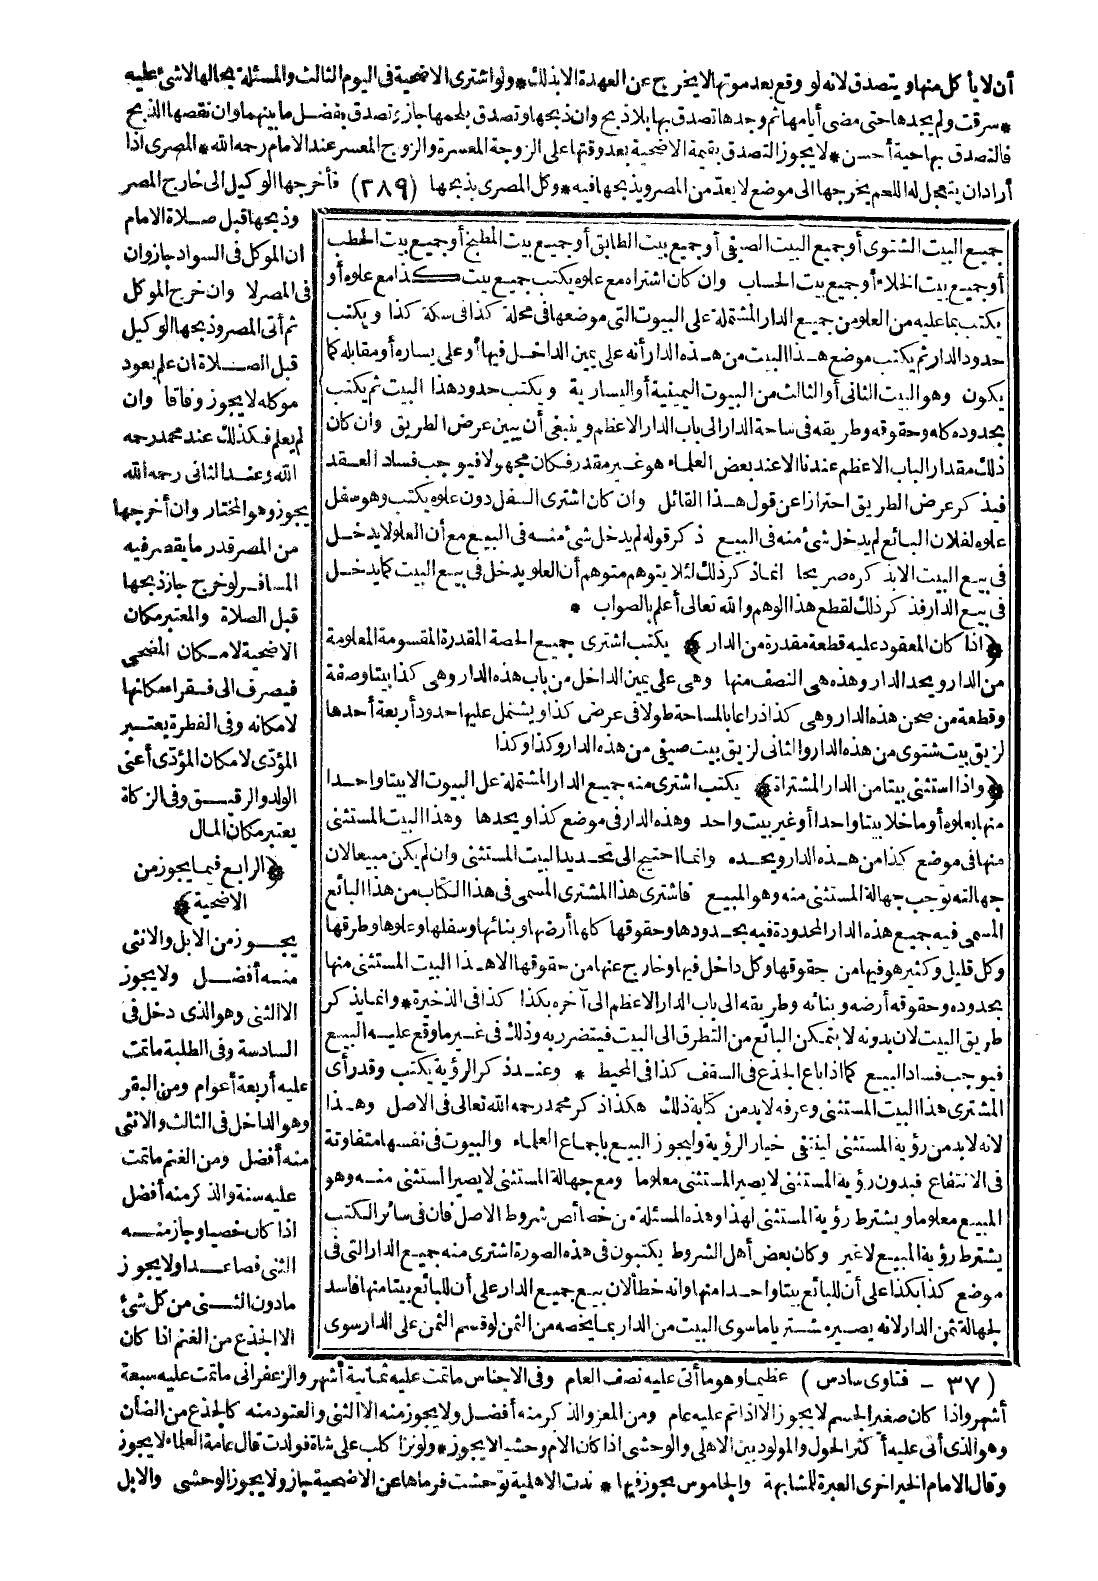 أن لا يأكل منها ويتصدق لانه لو وقع بعد موتها لا يخرج عن العهدة الا بذلك * ولو اشترى الاضحية فى اليوم الثالث والمسئلة بحالها لا شئ عليه
* سرقت ولم يجدها حتى مضى أيامها ثم وجدها تصدق بها بلا ذبح وان ذبحها وتصدق بلحمها جاز وتصدق بفضل ما بينهما وان نقصها الذبح
فالتصدق بها حية أحسن * لا يجوز التصدق بقيمة الاضحية بعد وقتها على الزوجة المعسرة والزوج المعسر عند الامام رحمه الله * المصرى اذا
أراد ان يتعجل له اللحم يخرجها الى موضع لا يعد من المصر ويذبحها فيه * وكل المصرى بذبحها (٢٨٩) فأخرجها الوكيل الى خارج المصر
وذبحها قبل صلاة الامام
ان الموكل فى السواد جاز وان
فى المصر لا وان خرج الموكل
ثم أتى المصر وذبحها الوكيل
قبل الصلاة ان علم بعود
موكله لا يجوز وفاقا وان
لم يعلم فكذلك عند محمد رحمه
الله وعند الثانى رحمه الله
يجوز وهو المختار وان أخرجها
من المصر قدر ما يقصر فيه
المسافر لو خرج جاز ذبحها
قبل الصلاة والمعتبر مكان
الاضحية لا مكان المضحى
فيصرف الى فقراء مكانها
لا مكانه وفى الفطرة يعتبر
المؤدّى لا مكان المؤدّى أعنى
الولد والرقيق وفى الزكاة
يعتبر مكان المال
﴿الرابع فيما يجوز من
الاضحية﴾
يجوز من الابل والانثى
منه أفضل ولا يجوز
الا الثنى وهو الذى دخل فى
السادسة وفى الطلبة ما تمت
عليه أربعة أعوام ومن البقر
وهو الداخل فى الثالث والانثى
منه أفضل ومن الغنم ما تمت
عليه سنة والذكر منه أفضل
اذا كان خصيا وجاز منه
الثنى فصاعدا ولا يجوز
ما دون الثنى من كل شئ
الا الجذع من الغنم اذا كان
جميع البيت الشتوى أو جميع البيت الصيفى أو جميع بيت الطابق أو جميع بيت المطبخ أو جميع بيت الحطب
أو جميع بيت الخلاء أو جميع بيت الحساب وان كان اشتراه مع علوه يكتب جميع بيت كذا مع علوه أو
يكتب بما عليه من العلو من جميع الدار المشتملة على البيوت التى موضعها فى محلة كذا فى سكة كذا ويكتب
حدود الدار ثم يكتب موضع هذا البيت من هذه الدار أنه على يمين الداخل فيها أو على يساره أو مقابله كما
يكون وهو البيت الثانى أو الثالث من البيوت اليمينية أو اليسارية ويكتب حدود هذا البيت ثم يكتب
بحدوده كله وحقوقه وطريقه فى ساحة الدار الى باب الدار الاعظم وينبغى أن يبين عرض الطريق وان كان
ذلك مقدار الباب الاعظم عندنا لا عند بعض العلماء هو غير مقدر فكان مجهولا فيوجب فساد العقد
فيذكر عرض الطريق احترازا عن قول هذا القائل وان كان اشترى السفل دون علوه يكتب وهو سفل
علوه لفلان البائع لم يدخل شئ منه فى البيع ذكر قوله لم يدخل شئ منه فى البيع مع أن العلو لا يدخل
فى بيع البيت الا بذكره صريحا انما ذكر ذلك لئلا يتوهم متوهم أن العلو يدخل فى بيع البيت كما يدخل
فى بيع الدار فذكر ذلك لقطع هذا الوهم والله تعالى أعلم بالصواب *
﴿اذا كان المعقود عليه قطعة مقدرة من الدار﴾ يكتب اشترى جميع الحصة المقدرة المقسومة المعلومة
من الدار ويحد الدار وهذه هى النصف منها وهى على يمين الداخل من باب هذه الدار وهى كذا بيتا وصفة
وقطعة من صحن هذه الدار وهى كذا ذراعا بالمساحة طولا فى عرض كذا ويشتمل عليها حدود أربعة أحدها
لزيق بيت شتوى من هذه الدار والثانى لزيق بيت صيفى من هذه الدار وكذا وكذا
﴿واذا استثنى بيتا من الدار المشتراة﴾ يكتب اشترى منه جميع الدار المشتملة على البيوت الا بيتا واحدا
منها بعلوه أو ما خلا بيتا واحدا أو غير بيت واحد وهذه الدار فى موضع كذا ويحدها وهذا البيت المستثنى
منها فى موضع كذا من هذه الدار ويحده وانما احتيج الى تحديد البيت المستثنى وان لم يكن مبيعا لان
جهالته توجب جهالة المستثنى منه وهو المبيع فاشترى هذا المشترى المسمى فى هذا الكتاب من هذا البائع
المسمى فيه جميع هذه الدار المحدودة فيه بحدودها وحقوقها كلها أرضها وبنائها وسفلها وعلوها وطرقها
وكل قليل وكثير هو فيها من حقوقها وكل داخل فيها وخارج عنها من حقوقها الا هذا البيت المستثنى منها
بحدوده وحقوقه أرضه وبنائه وطريقه الى باب الدار الاعظم الى آخره بكذا كذا فى الذخيرة * وانما يذكر
طريق البيت لان بدونه لا يتمكن البائع من التطرق الى البيت فيتضرر به وذلك فى غير ما وقع عليه البيع
فيوجب فساد البيع كما اذا باع الجذع فى السقف كذا فى المحيط * وعند ذكر الرؤية يكتب وقد رأى
المشترى هذا البيت المستثنى وعرفه لا بد من كتابة ذلك هكذا ذكر محمد رحمه الله تعالى فى الاصل وهذا
لانه لا بد من رؤية المستثنى لينتفى خيار الرؤية ويجوز البيع باجماع العلماء والبيوت فى نفسها متفاوتة
فى الانتفاع فبدون رؤية المستثنى لا يصير المستثنى معلوما ومع جهالة المستثنى لا يصير المستثنى منه وهو
المبيع معلوما ويشترط رؤية المستثنى لهذا وهذه المسئلة من خصائص شروط الاصل فان فى سائر الكتب
يشترط رؤية المبيع لا غير وكان بعض أهل الشروط يكتبون فى هذه الصورة اشترى منه جميع الدار التى فى
موضع كذا بكذا على أن للبائع بيتا واحدا منها وانه خطأ لان بيع جميع الدار على أن للبائع بيتا منها فاسد
لجهالة ثمن الدار لانه يصير مشتريا ما سوى البيت من الدار بما يخصه من الثمن لو قسم الثمن على الدار سوى
(٣٧ - فتاوى سادس) عظيما وهو ما أتى عليه نصف العام وفى الاجناس ما تمت عليه ثمانية أشهر والزعفرانى ما تمت عليه سبعة
أشهر واذا كان صغير الجسم لا يجوز الا اذا تم عليه عام ومن المعز والذكر منه أفضل ولا يجوز منه الا الثنى والعتود منه كالجذع من الضأن
وهو الذى أتى عليه أكثر الحول والمولود بين الاهلى والوحشى اذا كان الام وحشية لا يجوز * ولو نزا كلب على شاة فولدت قال عامة العلماء لا يجوز
وقال الامام الخيزاخزى العبرة للمشابهة والجاموس يجوز فيها * ندت الاهلية توحشت فرماها عن الاضحية جاز ولا يجوز الوحشى والابل